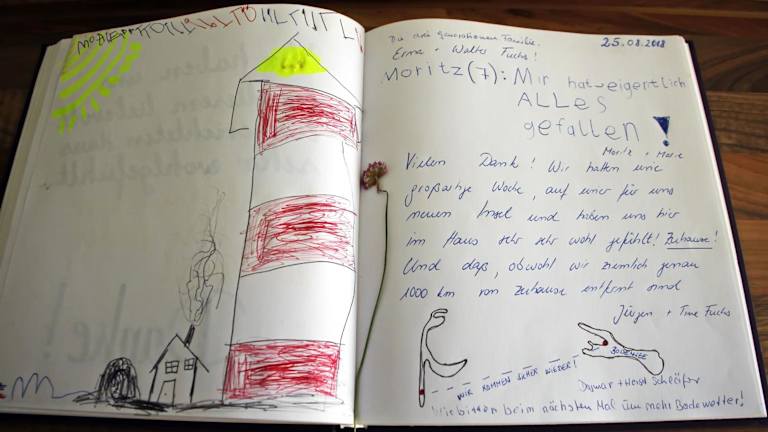 Die drei generationen Familie.
25.08.2018
Erna + Walter Fuchs!
Moritz (7): Mir hat eigentlich
ALLES
gefallen !
Moritz + Marie
Vielen Dank! Wir hatten eine
großartige Woche, auf einer für uns
neuen Insel und haben uns hier
im Haus sehr sehr wohl gefühlt! Zuhause!
Und daß, obwohl wir ziemlich genau
1000 km von Zuhause entfernt sind
Jürgen + Tine Fuchs
BODENSEE
WIR KOMMEN SICHER WIEDER!
Dagmar + Horst Schläfer
Wir bitten beim nächsten Mal um mehr Badewetter!